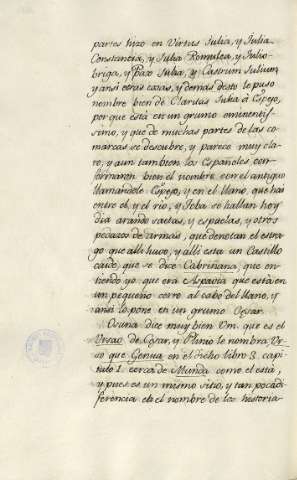 partes hizo en Virtus Julia, y Julia
Constancia, y Julia Romulea, y Julio-
briga, y Pax Julia, y Castrum Julium
y ansi otras cosas, y demas desto le puso
nombre bien de Claritas Julia à Espejo,
porque está en un grumo eminentis-
simo, y que de muchas partes de las co-
marcas se descubre, y parece muy cla-
ro, y aun tambien los Españoles con-
formaron bien el nombre con el antiguo
llamandole Espejo, y en el llano, que hai
entre el, y el rio, y Teba se hallan hoy
dia arando saetas, y espuelas, y otros
pedazos de armas, que denotan el estra-
go que alli huvo, y alli está un Castillo
caido, que se dice Cabriñana, que en-
tiendo yo, que era Aspavia que está en
un pequeño cerro al cabo del llano, y
ansi lo pone en un grumo Cesar.
Osuna dice muy bien Vm. que es el
Ursao de Cesar, y Plinio le nombra, Ur-
so que Genua en el dicho libro 3. capi-
tulo 1. cerca de Munda como el está,
y pues es un mismo sitio, y tan poca di-
ferencia el nombre de la historia